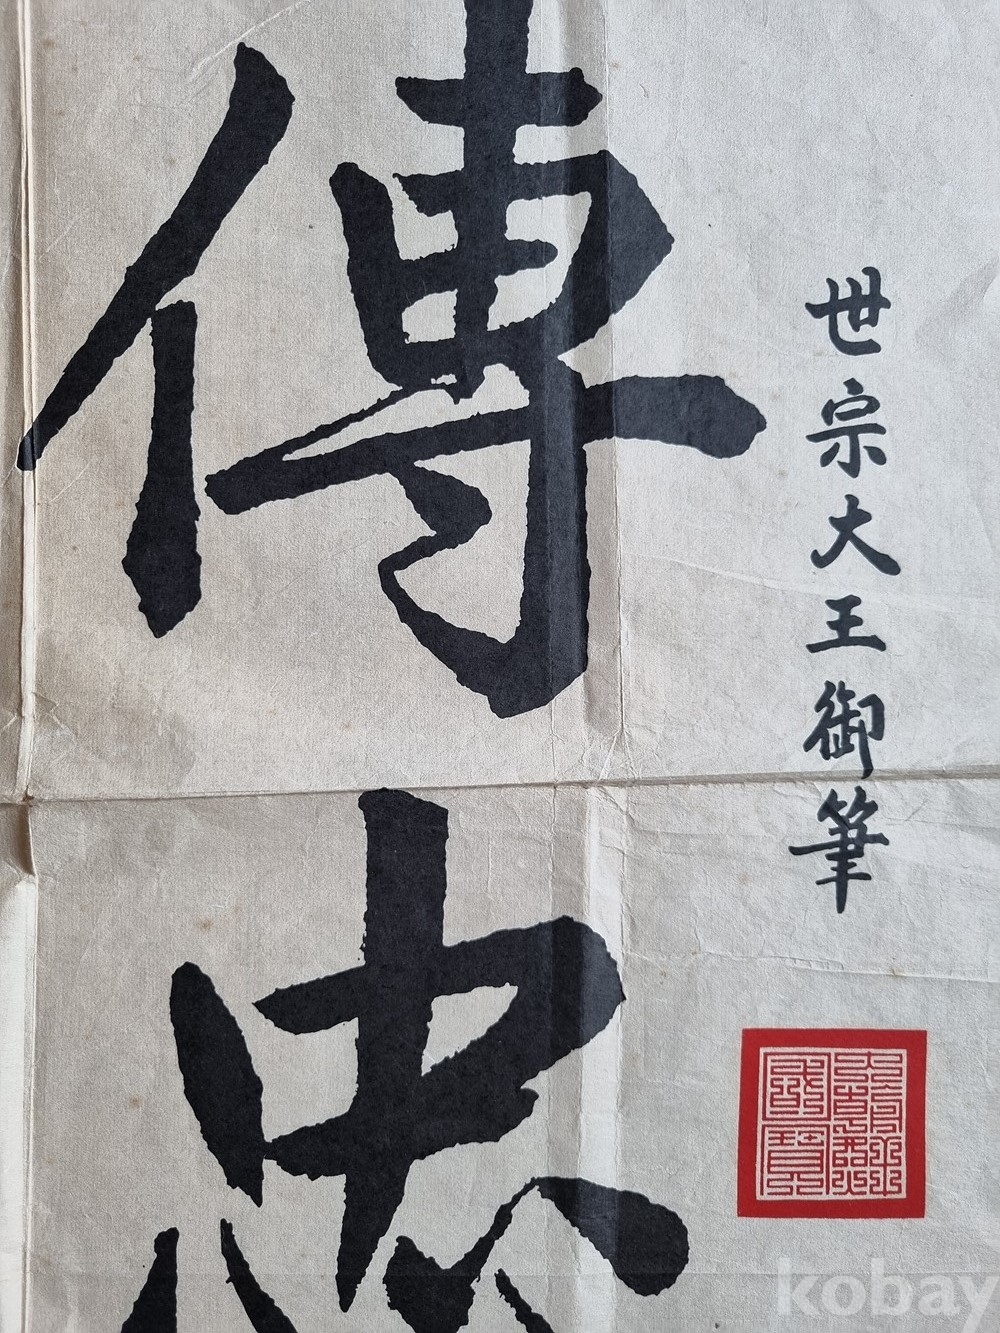 傳忠
世宗大王御筆
kobay